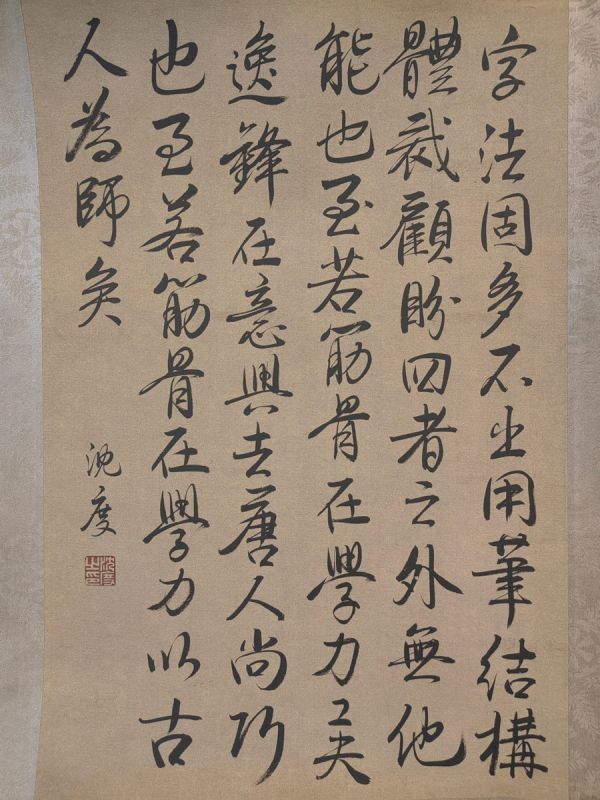 字法固多不止用筆結構
體裁顧盼四者之外無他
能也至若筋骨在學力工夫
逸鋒在意興去唐人尚巧
也至若筋骨在學力以古
人為師矣
沈度
沈度之印